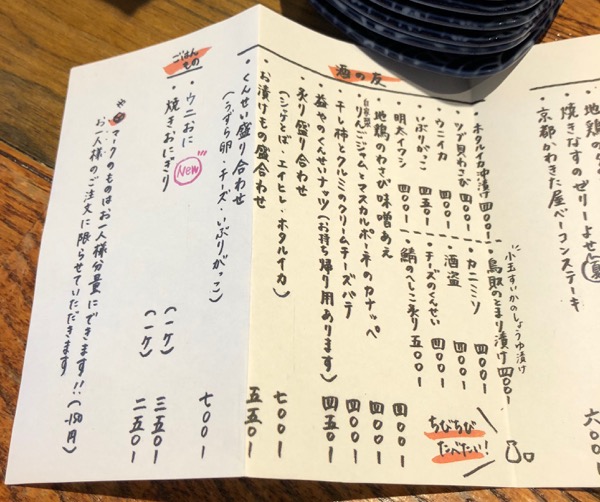 地鶏の
焼きなすのゼリーよせ 夏
京都かわきた屋ベーコンステーキ 六〇〇
酒の友
・ホタルイカ沖漬け 四〇〇ー
・ツブ貝わさび 四〇〇ー
・ウニイカ 四〇〇ー
・いぶりがっこ 四五〇ー
・明太イワシ 四〇〇ー
小玉すいかのしょうゆ漬け
・鳥取のとまり漬け 四〇〇ー
・カニミソ 四〇〇ー
・酒盗 四〇〇ー
・チーズのくんせい 四〇〇ー
・鯖のへしこ炙り 五〇〇ー
ちびちび
たべたい!
・地鶏のわさび味噌あえ 四〇〇ー
・自家製りんごジャムとマスカルポーネのカナッペ 四〇〇ー
・干し柿とクルミのクリームチーズパテ 四〇〇ー
・益やのくんせいナッツ(お持ち帰り用あります) 四五〇ー
・炙り盛り合わせ 七〇〇ー
(シャケとば、エイヒレ、ホタルイカ)
・お漬けもの盛合わせ 五五〇ー
・くんせい盛り合わせ 七〇〇ー
(うずら卵・チーズ・いぶりがっこ)
ごはんもの
・ウニおに New (一ケ) 三五〇ー
・焼きおにぎり (一ケ) 二五〇ー
※マークのものはお一人様分量にできます!!(-150円)
お一人様のご注文に限らせていただきます